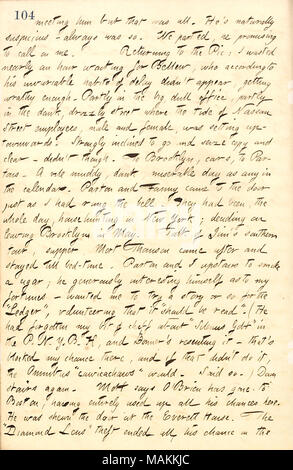 104
meeting him but that was all. He's naturally
suspicious - always was so. We parted, he promising
to call on me. Returning to the Pic; I waited
nearly an hour waiting for Bellew, who according to
his invariable habits of delay didn't appear, getting
wrathy enough. Partly in the big dull office, partly
in the dank, drizzly street where the tide of Nassau
street employees, male and female, was setting up-
townwards. Strongly inclined to go and seize copy and
clear - didn't though. To Brooklyn, cars, to Par-
tons. A vile muddy, dank, miserable day as any in
the calendar. Parton and Fanny came to the door
just as I had rung the bell. They had been, the
whole day, house hunting in New York; deciding on
leaving Brooklyn in May. Talk of Jim's southern
tour, supper. Mort Thomson came after and
stayed till bed-time. Parton and I upstairs to smoke
a cigar; he generously interesting himself as to my
fortunes - wanted me to try a story or so for the
"Ledger", volunteering that it should be read. (He
had forgotten my bit of chaff about
the P. N. Y. P. H, and Bonner's resenting it - that's
blocked my chance there, and if that didn't do it,
the Omnibus would. I said so.) Down
stairs again. Mort says O'Brien has gone to
Boston, having entirely used up all his chances here.
He was shewn the door at the Everett House. The
"Diamond Lens" theft ended all his chance in the
alamy
Image ID: MAKKJC
www.alamy.com